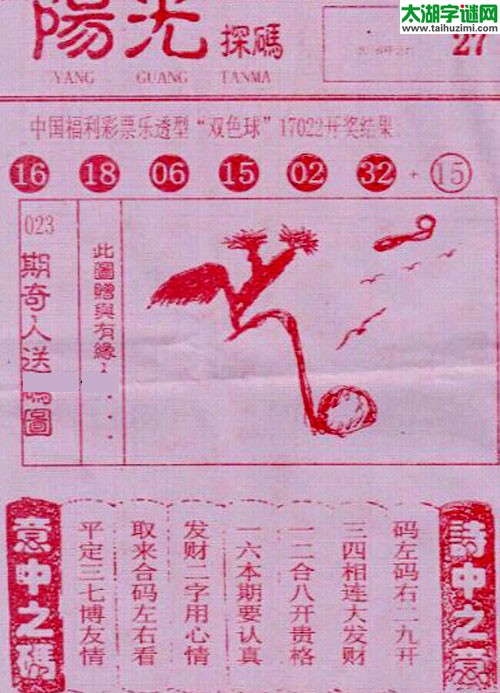 陽光探碼
YANG GUANG TANMA
27
太湖字谜网
www.taihuzimi.com
中国福利彩票乐透型“双色球”17022开奖结果
16 18 06 15 02 32 + 15
023
期奇人送碼圖
此圖贈與有緣人....
詩中之意
码左码右二九开
三四相连大发财
一二合八开贵格
一六本期要认真
发财二字用心情
取来合码左右看
平定三七博友情
意中之碼